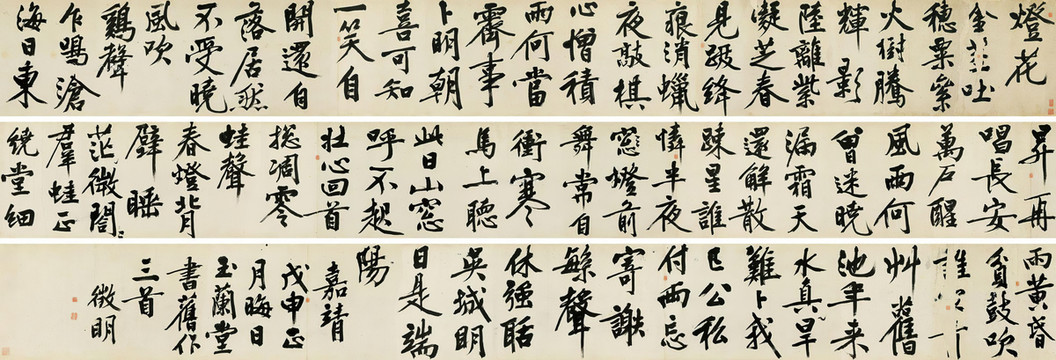 燈花
金蕊吐
穗粟縈
火樹騰
輝影
陸離紫
凝芝春
見跋絳
痕消蠟
夜敲棋
心憎積
雨何當
霽事
卜明朝
喜可知
一笑自
開還自
落居然
不受曉
風吹
鷄聲
乍鳴滄
海日東
昇再
唱長安
萬戶醒
風雨何
曾迷曉
漏霜天
還解散
踈星誰
憐半夜
窓燈前
舞常自
衝寒
馬上聽
此日山窓
呼不起
壯心回首
摠凋零
蛙聲
春燈背
壁睡
茫微閣
羣蛙正
繞堂細
雨黄昏
貧鼓吹
艸舊
池半来
水真旱
難卜我
已公私
付兩忘
寄謝
繁聲
休強聒
吳城明
日是端
陽
嘉靖
戊申正
月晦日
玉蘭堂
書舊作
三首
徵明